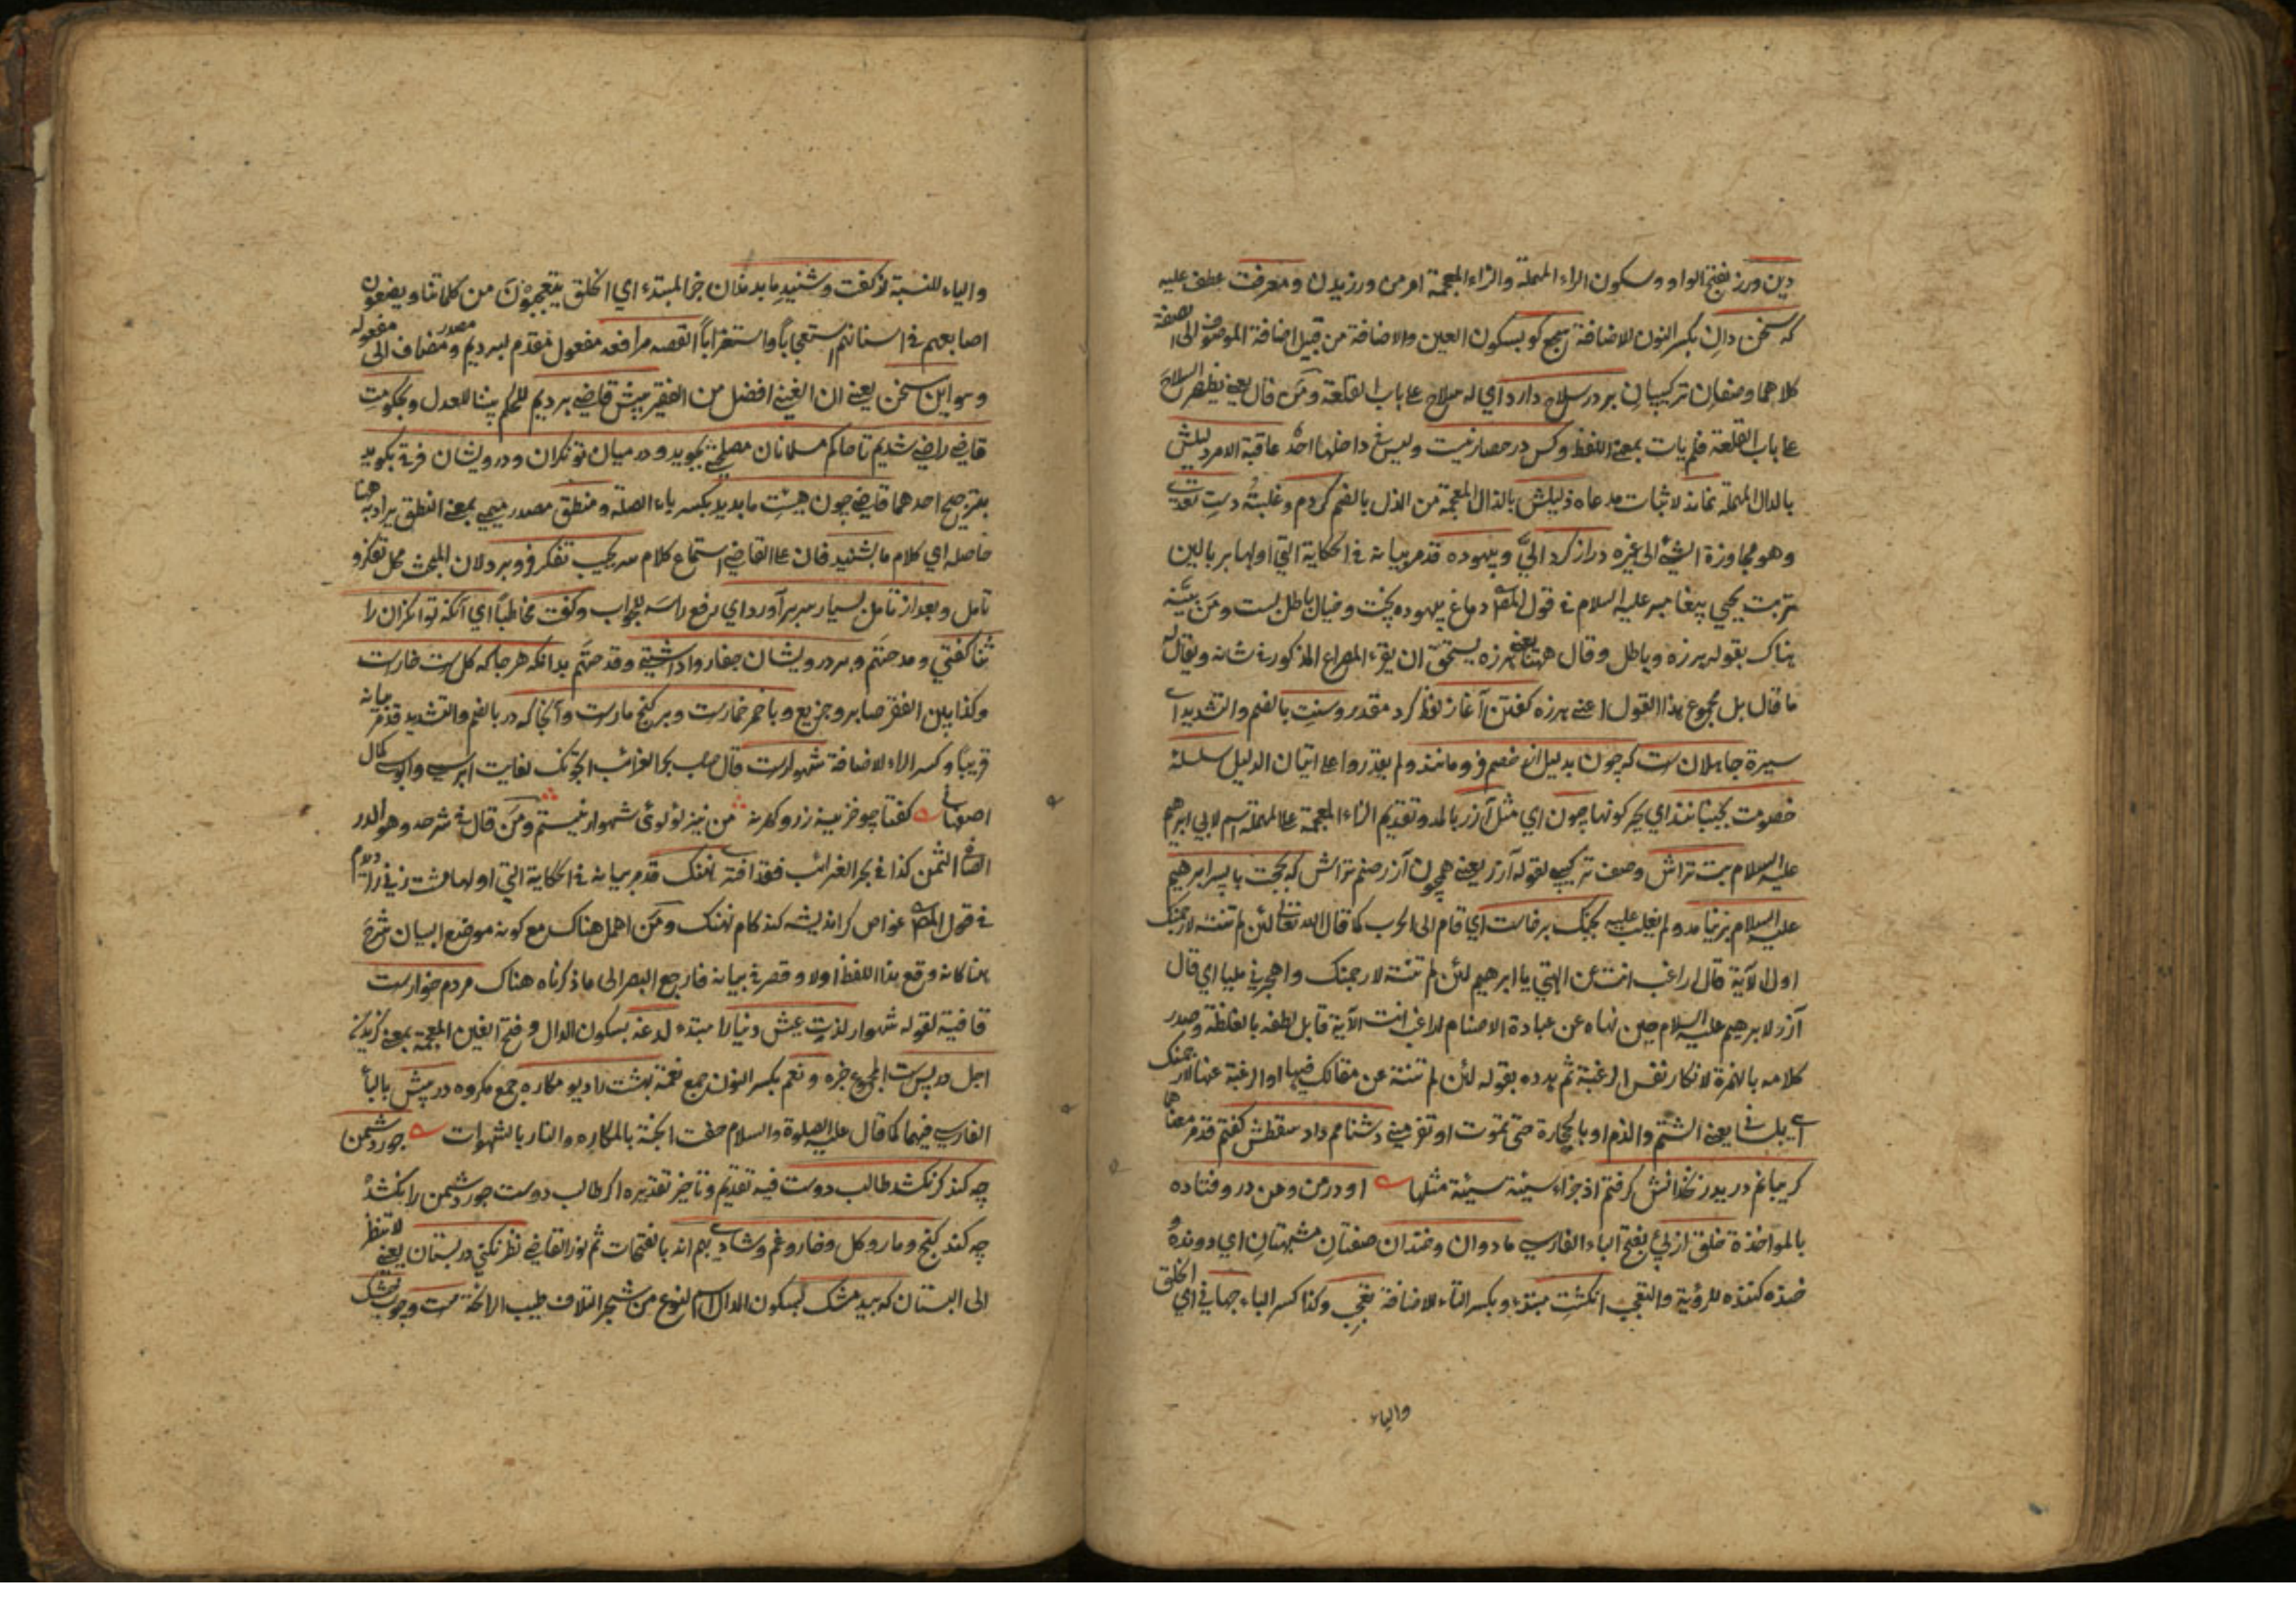 دين ورز بفتح الواو وسكون الراء المهملة والزاء المعجمة امر من ورزيدن ومعرفت عطف عليه
كه سخن دان بكسر النون للاضافة سجع كو بسكون العين والاضافة من قبيل اضافة الموصوف الى الصفة
كلاهما وصفان تركيبيان بر در سلاح دارد اي له سلاح على باب القلعة ومن قال يعني يظهر السلاح
على باب القلعة فلم يات بمعنى اللفظ وكس در حصار نيست وليس في داخلها احد عاقبة الامر دليلش
بالدال المهملة نماند لاثبات مدعاه ذليلش بالذال المعجمة من الذل بالضم كردم وغلبته دست تعدي
وهو مجاوزة الشئ الى غيره دراز كرد الي وبيهوده قد مر بيانه في الحكاية التي اولها بر بالين
تربت يحيى پيغامبر عليه السلام في قول المص دماغ بيهوده پخت وخيال باطل بست ومن بينه
هناك بقوله هرزه وباطل وقال ههنا يعني هرزه يستحق ان يقرء المصراع المذكور في شانه ويقال له
ما قال بل مجموع هذا القول اعني هرزه كفتن آغاز لفظ كرد مقدر وسنت بالضم والتشديد اي
سيرة جاهلان ست كه چون بدليل از خصم فرو مانند ولم يقدروا على اتيان الدليل سلسلة
خصومت بجنبانند اي يحركونها چون اي مثل آزر بالمد وتقديم الزاء المعجمة على المهملة اسم لابي ابرهيم
عليه السلام بت تراش وصف تركيبي لقوله آزر يعني همچون آزر صنم تراش كه بحجت با پسر ابرهيم
عليه السلام بر نيامد ولم يغلب عليه بجنك برخاست اي قام الى الحرب كما قال الله تعالى لئن لم تنته لارجمنك
اول الآية قال اراغب انت عن الهتي يا ابرهيم لئن لم تنته لارجمنك واهجرني مليا اي قال
آزر لابرهيم عليه السلام حين نهاه عن عبادة الاصنام اراغب انت الآية قابل لطفه بالغلظة وصدر
كلامه بالهمزة لانكار نفس الرغبة ثم هدده بقوله لئن لم تنته عن مقالك فيها او الرغبة عنها لارجمنك
اي بلساني يعني الشتم والذم او بالحجارة حتى تموت او تفر مني دشنامم داد سقطش كفتم قد مر معناهما
كريبانم دريد زنخدانش كرفتم اذ جزاء سيئة سيئة مثلها او در من ومن در و فتاده
بالمواخذة خلق از پئ بفتح الباء الفارسي ما دوان وخندان صفتان مشبهتان اي دونده و
خنده كننده للرؤية والتعجب انكشت مبتدء وبكسر التاء للاضافة تعجب وكذا كسر الباء جهاني اي الخلق
والياء
والياء للنسبة از كفت وشنيد ما بدندان خبر المبتدء اي الخلق يتعجبون من كلماتنا ويضعون
اصابعهم في اسنانهم استعجابا واستغرابا القصه مرافعه مفعول مقدم لبرديم ومصدر مضاف الى مفعوله
وهو اين سخن يعني ان الغني افضل من الفقير پيش قاضي برديم للحكم بيننا للعدل وبحكومت
قاضي راضي شديم تا حاكم مسلمانان مصلحتي بجويد ودر ميان توانكران ودرويشان فرقي بكويد
بترجيح احدهما قاضي چون هيئت ما بديد بكسر باء الصلة ومنطق مصدر ميمي بمعنى النطق يراد به ههنا
حاصله اي كلام ما بشنيد فان على القاضي استماع كلام سر بجيب تفكر فرو برد لان المبحث محل تفكر و
تامل وبعد از تامل بسيار سر بر آورد اي رفع راسه للجواب وكفت مخاطبا اي آنكه توانكران را
ثنا كفتي ومدحتهم وبر درويشان جفا روا داشتي وقدحتهم بدانكه هر جا كه كل ست خارست
وكذا بين الفقر صابر وجزيع وبا خمر خمارست وبر كنج مارست وآنجا كه در بالضم والتشديد قد مر بيانه
قريبا وكسر الراء للاضافة شهوارست قال صاحب بحر الغرائب
اصفهاني كفتا چو خزينه زر و كهر نه من نيز لؤلوئ شهوار نيستم ومن قال في شرحه وهو الدر
الثمن كذا في بحر الغرائب فقد افترى نهنك قد مر بيانه في الحكاية التي اولها
في قول المص غواص كر انديشه كند كام نهنك ومن اهمل هناك مع كونه موضع البيان شرح
هنا كانه وقع هذا اللفظ اولا وقصر في بيانه فارجع البصر الى ما ذكرناه هناك مردم خوارست
قافية لقوله شهوار لذت عيش دنيا را مبتدء لدغه بسكون الدال وفتح الغين المعجمة بمعنى كزيدن
اجل در پس ست المجموع خبره ونعم بكسر النون جمع نعمة بهشت را ديو مكاره جمع مكروه در پيش بالباء
الفارسي فيهما كما قال عليه الصلوة والسلام حفت الجنة بالمكاره والنار بالشهوات جور دشمن
چه كند كر نكشد طالب دوست فيه تقديم وتاخير تقديره اكر طالب دوست جور دشمن را نكشد
چه كند كنج ومار وكل وخار وغم وشادي بهم اند بالفتحات ثم قال القاضي نظر نكني در بستان يعني لا تنظر
الى البستان كه بيد مشك بسكون الدال اسم لنوع من شجر الخلاف طيب الرائحة ست وچوب خشك